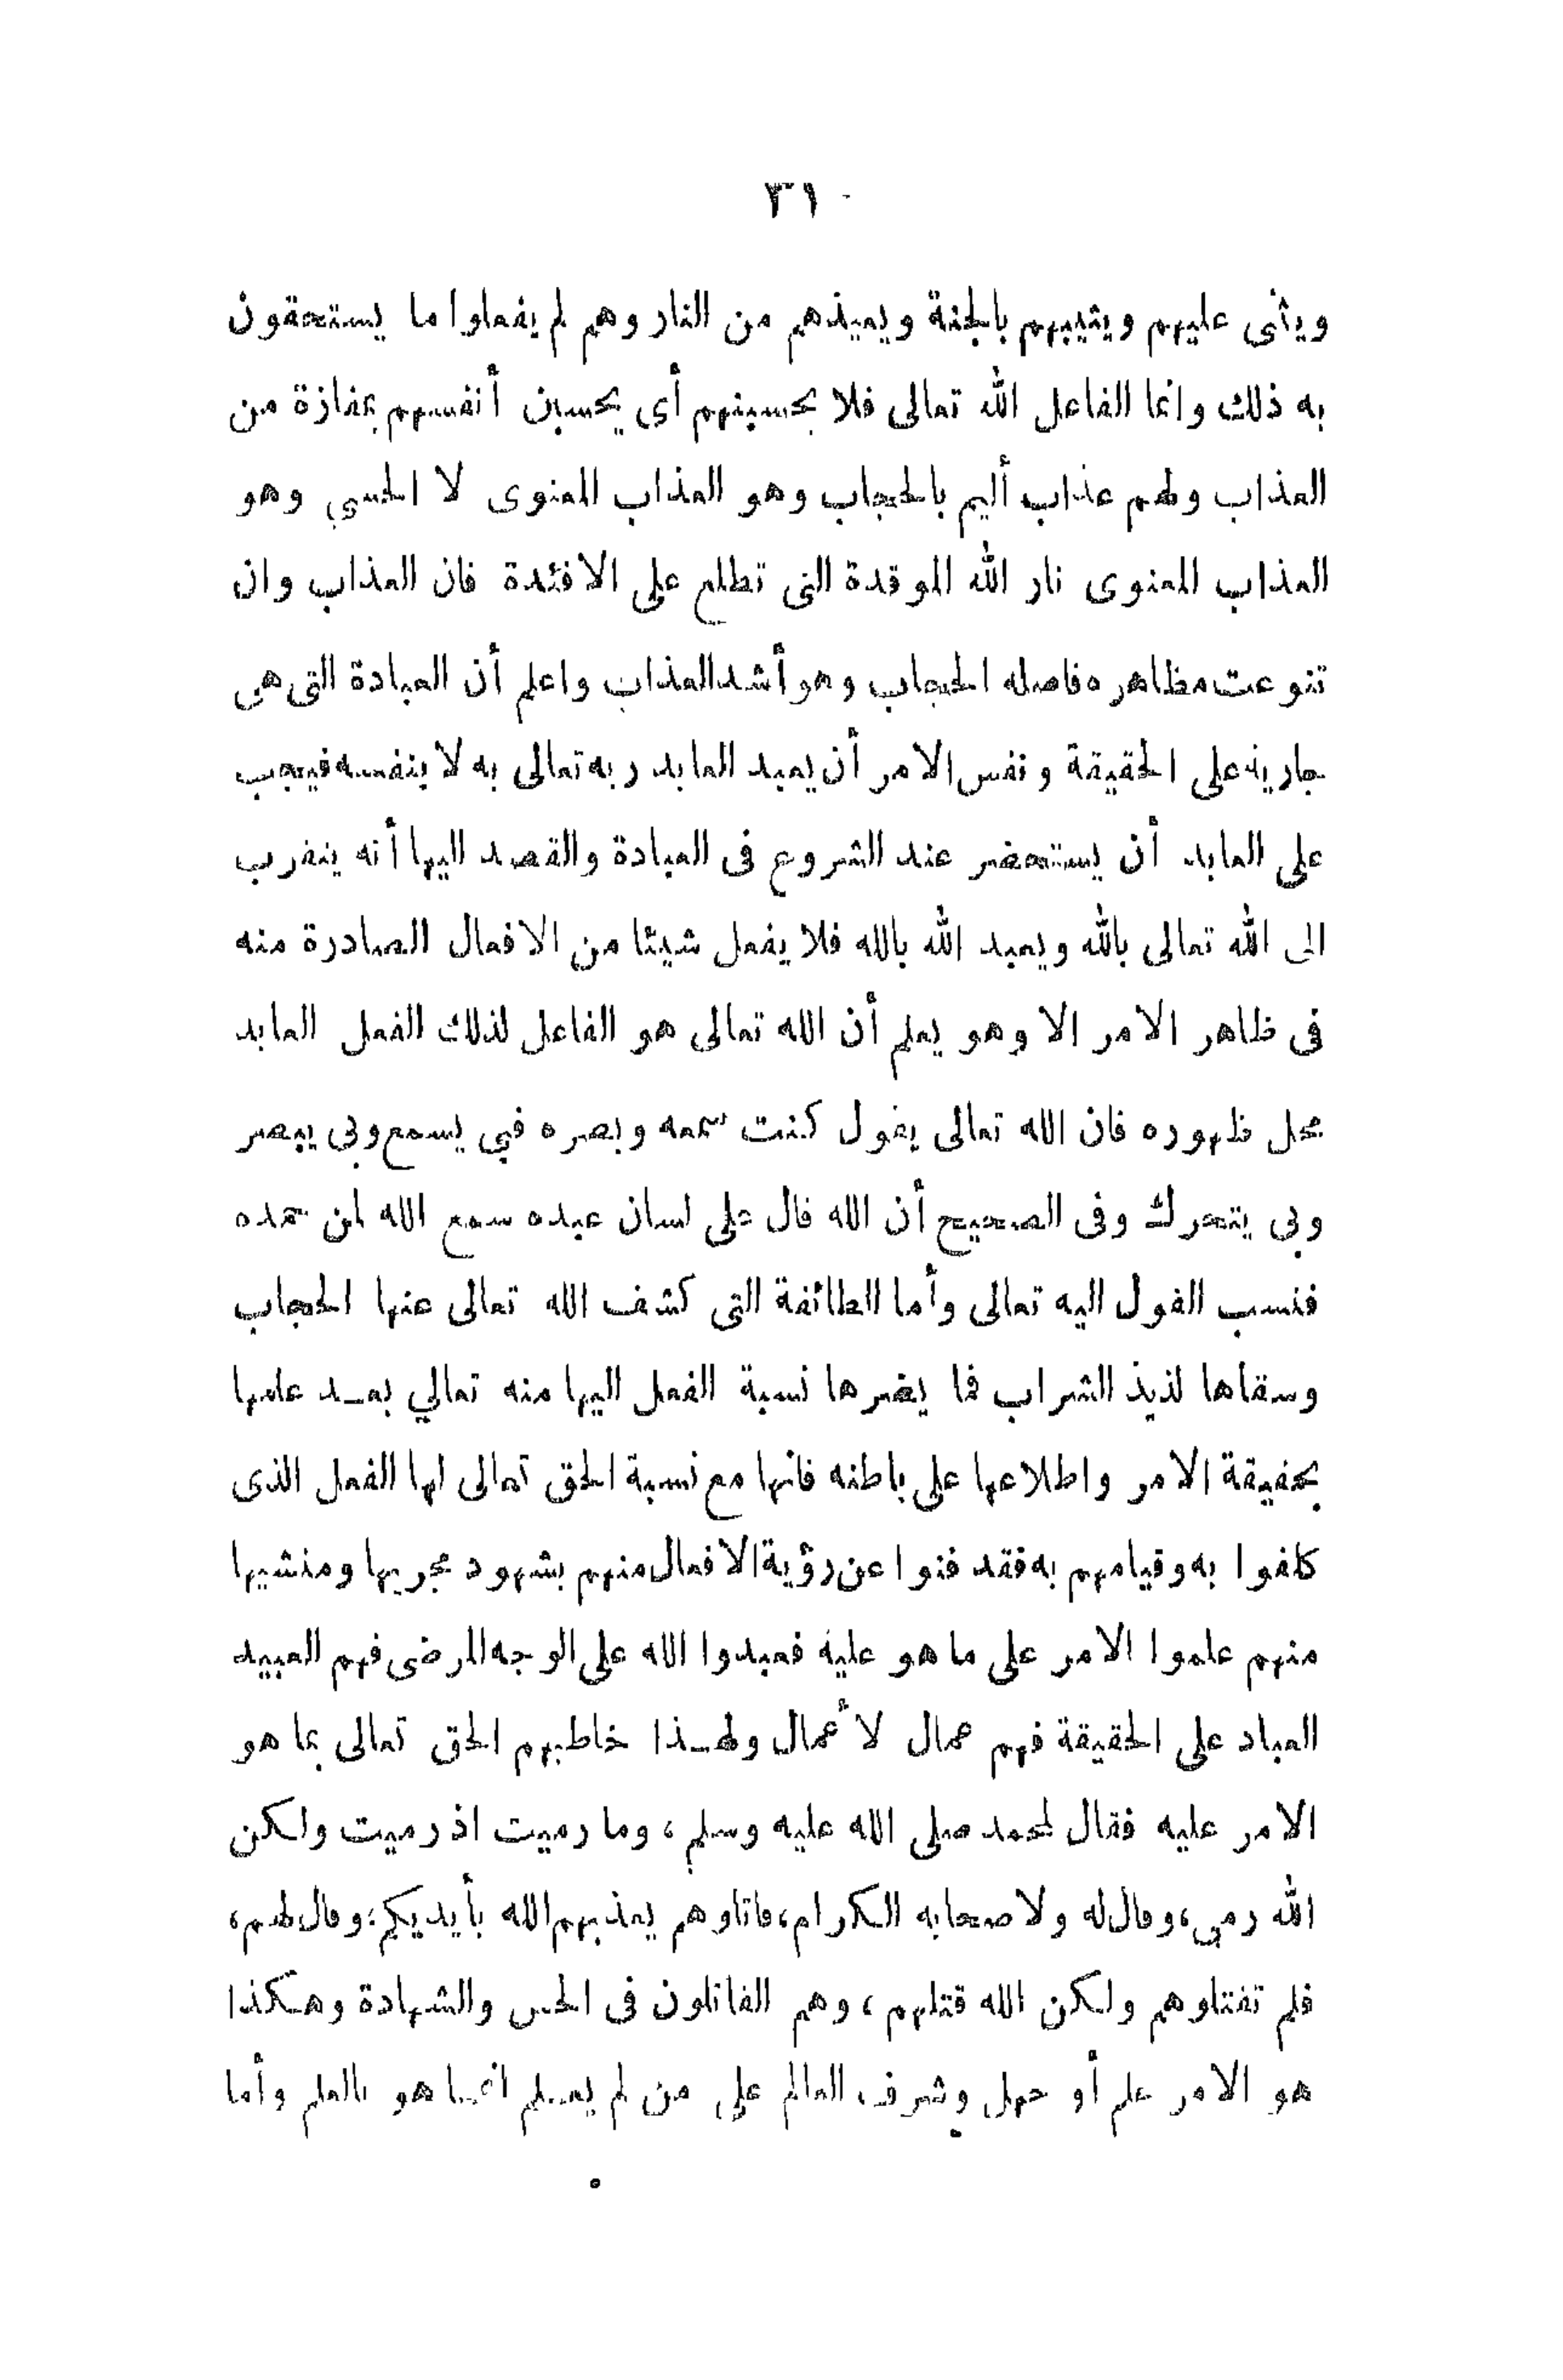 ٣١
ويثنى عليهم ويثيبهم بالجنة ويعيذهم من النار وهم لم يفعلوا ما يستحقون
به ذلك وانما الفاعل الله تعالى فلا تحسبنهم أى يحسبن أنفسهم بمفازة من
العذاب ولهم عذاب أليم بالحجاب وهو العذاب المعنوى لا الحسي وهو
العذاب المعنوى نار الله الموقدة التى تطلع على الافئدة فان العذاب وان
تنوعت مظاهره فاصله الحجاب وهو أشد العذاب واعلم أن العبادة التى هى
جارية على الحقيقة ونفس الامر أن يعبد العابد ربه تعالى به لا بنفسه فيجب
على العابد أن يستحضر عند الشروع فى العبادة والقصد اليها أنه يتقرب
الى الله تعالى بالله ويعبد الله بالله فلا يفعل شيئا من الافعال الصادرة منه
فى ظاهر الامر الا وهو يعلم أن الله تعالى هو الفاعل لذلك الفعل العابد
محل ظهوره فان الله تعالى يقول كنت سمعه وبصره فبي يسمع وبى يبصر
وبى يتحرك وفى الصحيح أن الله قال على لسان عبده سمع الله لمن حمده
فنسب القول اليه تعالى وأما الطائفة التى كشف الله تعالى عنها الحجاب
وسقاها لذيذ الشراب فما يضرها نسبة الفعل اليها منه تعالي بعد علمها
بحقيقة الامر واطلاعها على باطنه فانها مع نسبة الحق تعالى لها الفعل الذى
كلفوا به وقيامهم به فقد فنوا عن رؤية الافعال منهم بشهود مجريها ومنشيها
منهم علموا الامر على ما هو عليه فعبدوا الله على الوجه المرضى فهم العبيد
العباد على الحقيقة فهم عمال لا أعمال ولهذا خاطبهم الحق تعالى بما هو
الامر عليه فقال لمحمد صلى الله عليه وسلم ، وما رميت اذ رميت ولكن
الله رمى ، وقال له ولاصحابه الكرام ، قاتلوهم يعذبهم الله بأيديكم ؛ وقال لهم ،
فلم تقتلوهم ولكن الله قتلهم ، وهم القاتلون فى الحس والشهادة وهكذا
هو الامر علم أو جهل وشرف العالم على من لم يعلم انما هو بالعلم وأما